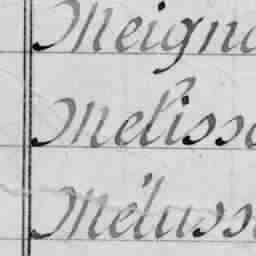 Meigna
Melisso
Mélusse